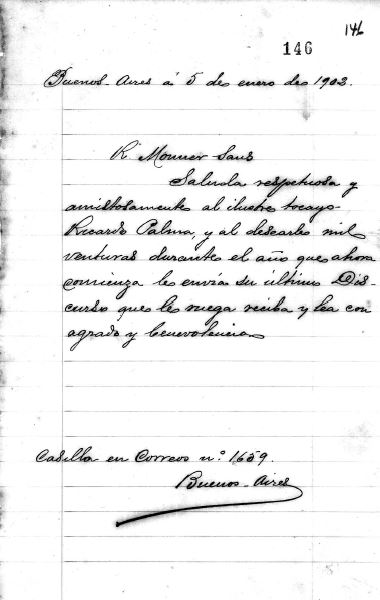 146
146
Buenos-Aires á 5 de enero de 1902.
R Monner Sans
Saluda respetuosa y
amistosamente al ilustre tocayo
Ricardo Palma, y al desearle mil
venturas durante el año que ahora
comienza le envía su último Dis-
curso que le ruega reciba y lea con
agrado y benevolencia
Casilla en Correos n.º 1659.
Buenos-Aires